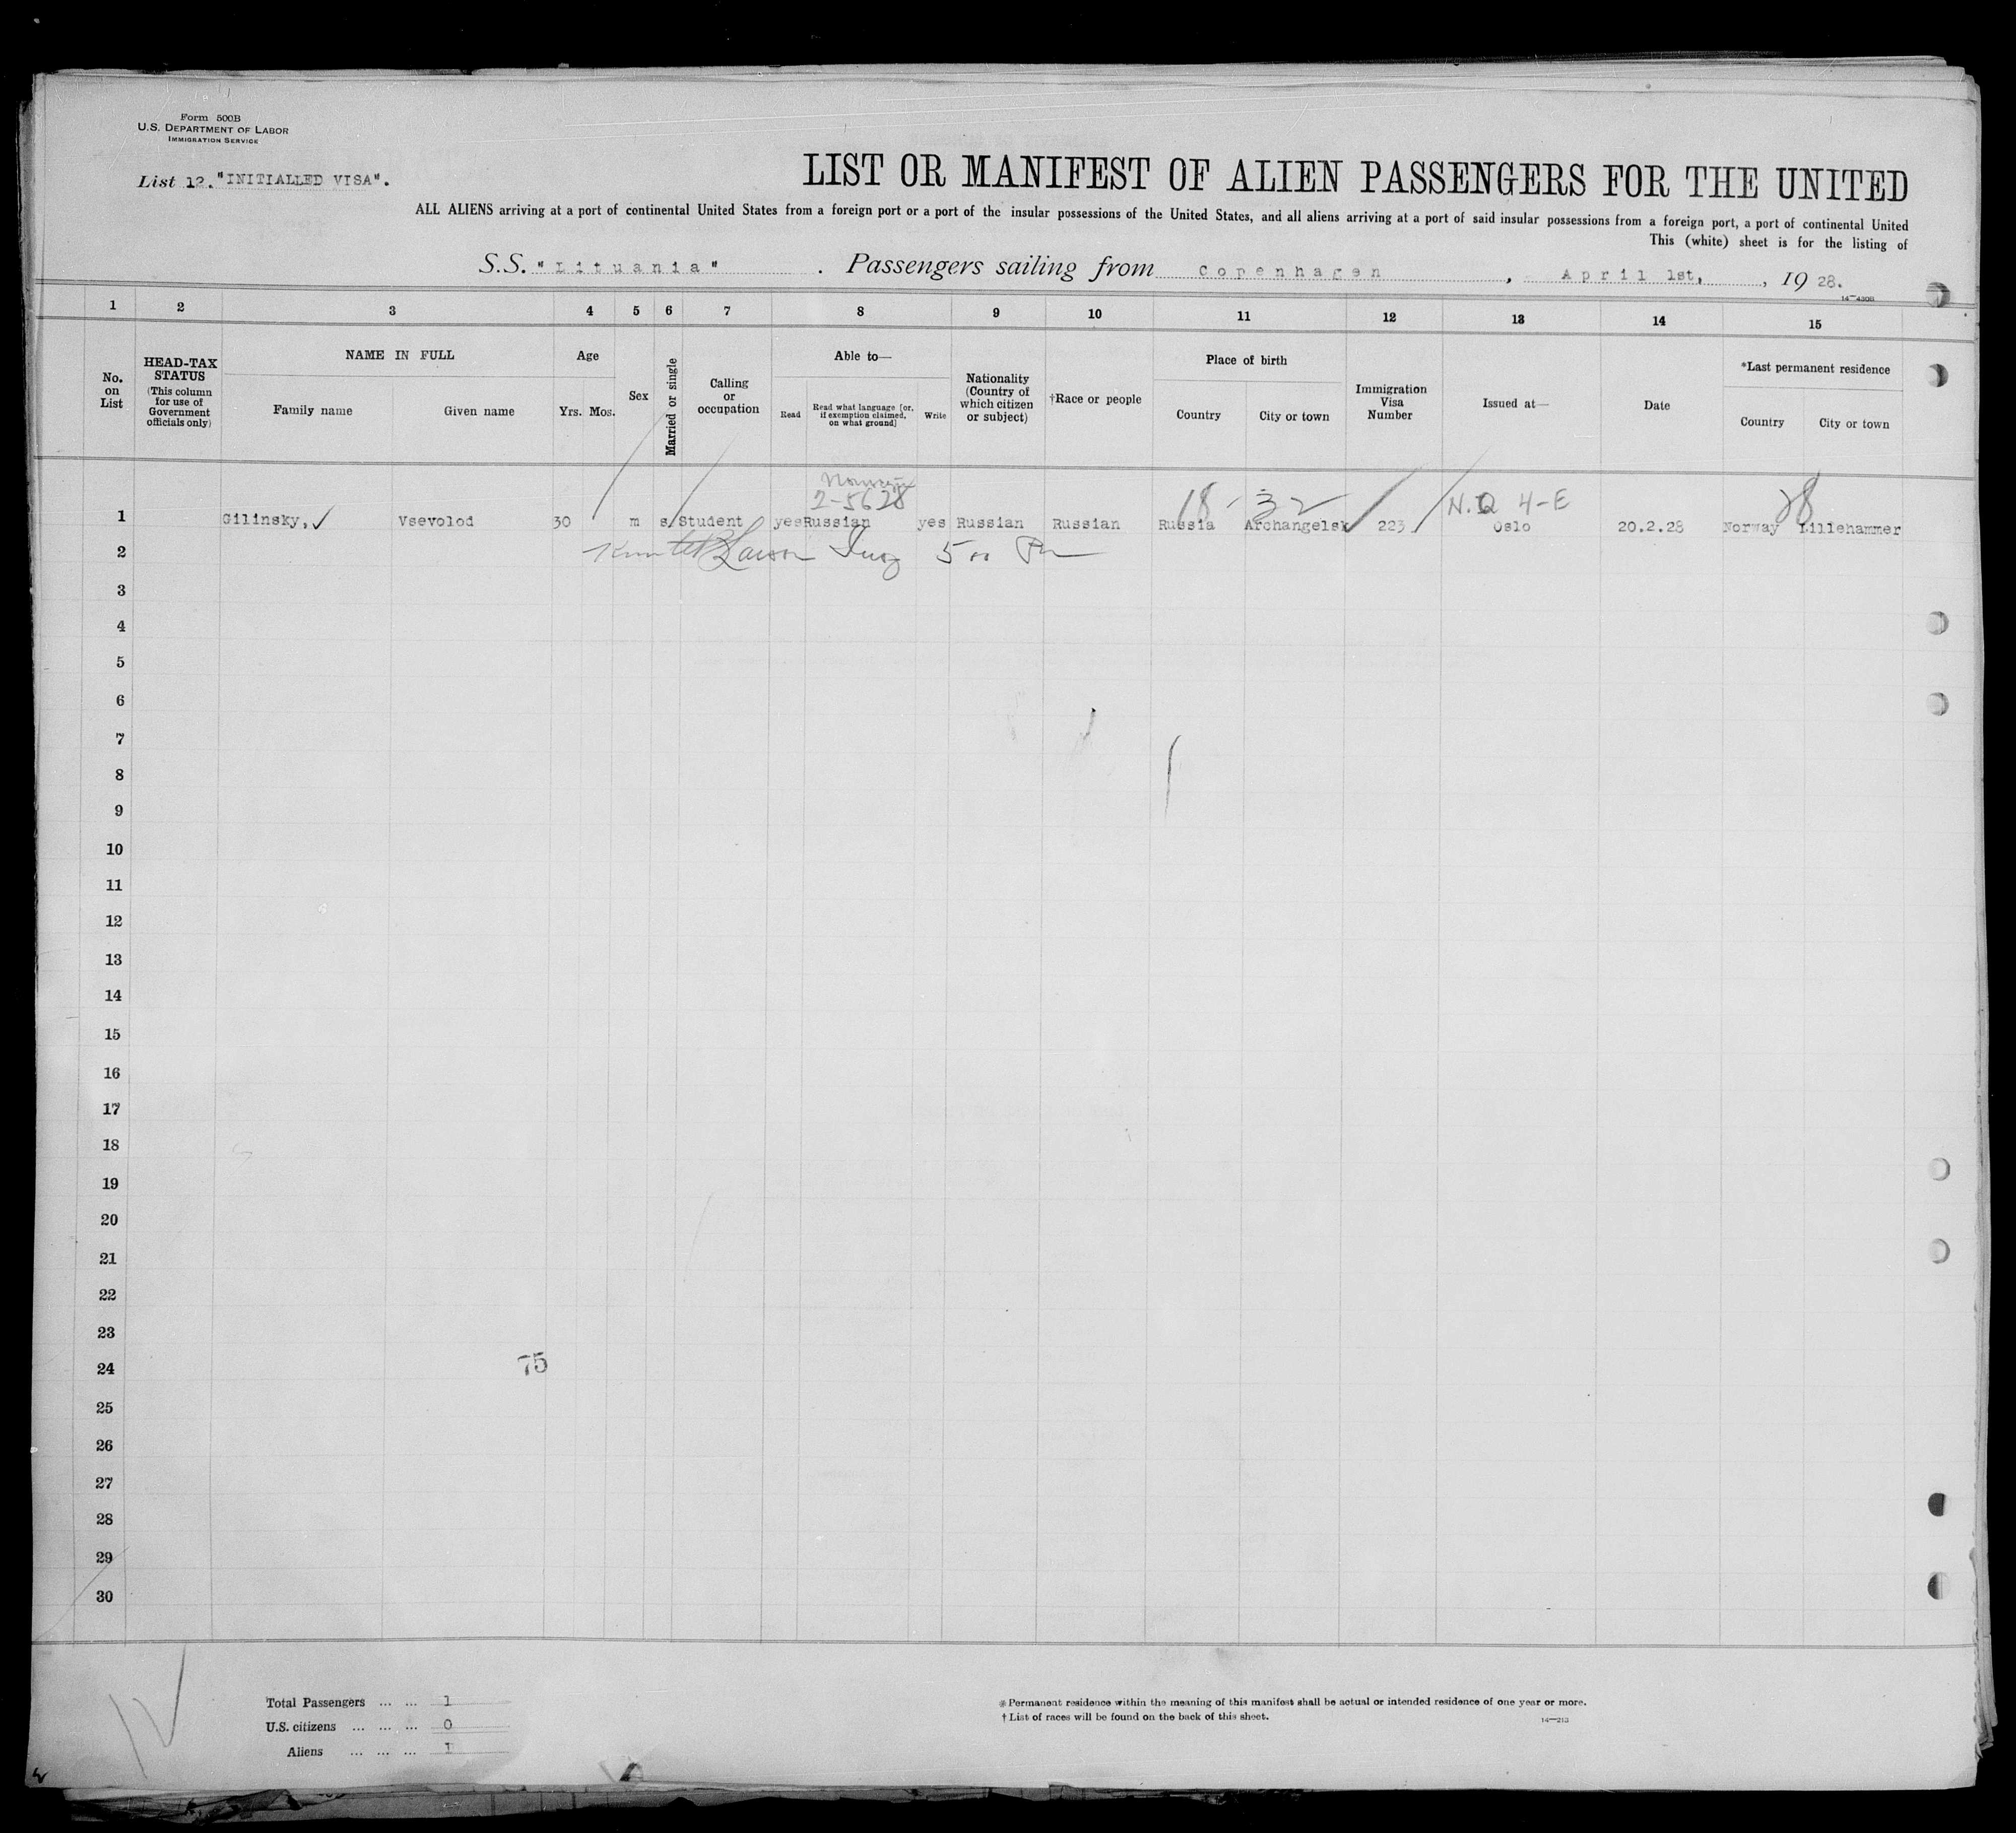 Form 500B
U.S. DEPARTMENT OF LABOR
IMMIGRATION SERVICE
List 12. "INITIALLED VISA".
LIST OR MANIFEST OF ALIEN PASSENGERS FOR THE UNITED
ALL ALIENS arriving at a port of continental United States from a foreign port or a port of the insular possessions of the United States, and all aliens arriving at a port of said insular possessions from a foreign port, a port of continental United
This (white) sheet is for the listing of
S.S. "Lituania". Passengers sailing from Copenhagen, April 1st, , 1928.
14—430B
1 2 3 4 5 6 7 8 9 10 11 12 13 14 15
No. on List
HEAD-TAX STATUS
(This column for use of Government officials only)
NAME IN FULL
Family name Given name
Age
Yrs. Mos.
Sex
Married or single
Calling or occupation
Able to—
Read
Read what language [or, if exemption claimed, on what ground]
Write
Nationality (Country of which citizen or subject)
†Race or people
Place of birth
Country City or town
Immigration Visa Number
Issued at—
Date
*Last permanent residence
Country City or town
2-5628
18 - 32
N.Q 4-E
28
1 Gilinsky, ✓ Vsevolod 30 m s Student yes Russian yes Russian Russian Russia Archangelsk 223 Oslo 20.2.28 Norway Lillehammer
2
3
4
5
6
7
8
9
10
11
12
13
14
15
16
17
18
19
20
21
22
23
24 75
25
26
27
28
29
30
Total Passengers ... ... 1
U.S. citizens ... ... ... 0
Aliens ... ... ... 1
* Permanent residence within the meaning of this manifest shall be actual or intended residence of one year or more.
† List of races will be found on the back of this sheet.
14—213